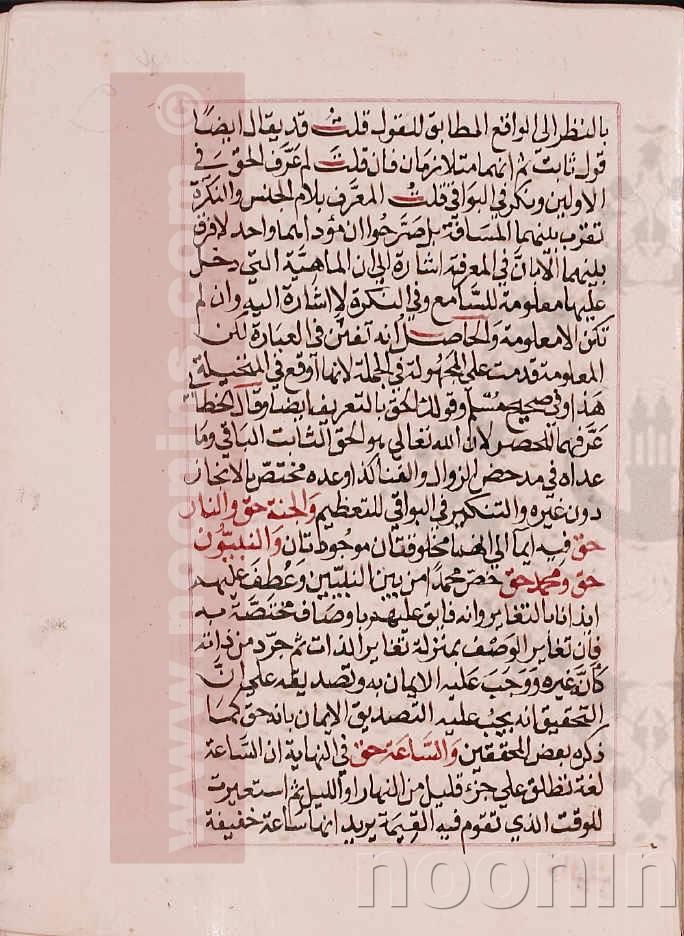 بالنظر الى الواقع المطابق للقول قلت قد يقال ايضا
قول ثابت ثم انهما متلازمان فان قلت لم عرف الحق في
الاولين ونكر في البواقي قلت المعرف بلام الجنس والنكرة
تقرب بينهما المسافة بل صرحوا ان مؤداهما واحد لا فرق
بينهما الا ان في المعرفة اشارة الى ان الماهية التي دخل
عليها معلومة للسامع وفي النكرة لا اشارة اليه وان لم
تكن الا معلومة والحاصل انه تفنن في العبارة لكن
المعلومة قدمت على المجهولة في الجملة لانها اوقع في المخيلة
هذا وفي صحيح مسلم وقولك الحق بالتعريف ايضا وقال الخطا في
عرفهما للحصر لان الله تعالى هو الحق الثابت الباقي وما
عداه في مدحض الزوال والفنا كذا وعده مختص بالانجاز
دون غيره والتنكير في البواقي للتعظيم والجنة حق والنار
حق فيه ايما الى انهما مخلوقتان موجودتان والنبيون
حق ومحمد حق خص محمدا من بين النبيين وعطف عليهم
ايذانا بالتغاير وانه فايق عليهم باوصاف مختصة به
فان تغاير الوصف بمنزلة تغاير الذات ثم جرد من ذاته
كانه غيره ووجب عليه الايمان به وتصديقه على ان
التحقيق انه يجب عليه التصديق الايمان بانه حق كما
ذكره بعض المحققين والساعة حق في النهاية ان الساعة
لغة تطلق على جزء قليل من النهار او الليل ثم استعيرت
للوقت الذي تقوم فيه القيمة يريد انها ساعة خفيفة
www.noonins.com ©
noonin